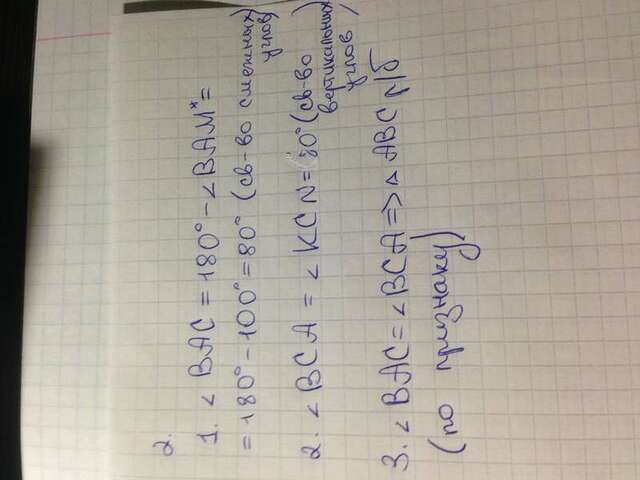 2.
1. < BAC = 180° - < BAM* =
= 180° - 100° = 80° (св-во смежных
углов)
2. < BCA = < KCN = 80° (св-во
вертикальных
углов)
3. < BAC = < BCA => △ ABC р/б
(по признаку)